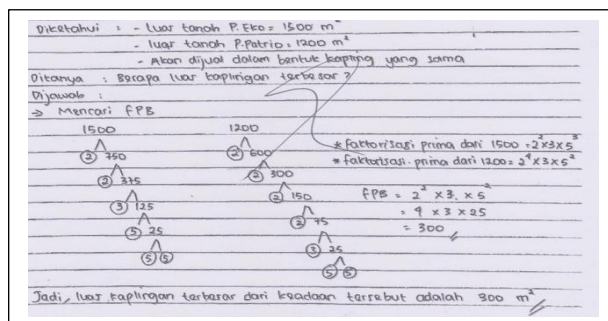 Diketahui : - Luas tanah P. Eko = 1500 m²
- luas tanah P. Patrio = 1200 m²
- Akan dijual dalam bentuk kapling yang sama
Ditanya : Berapa luas kaplingan terbesar?
Dijawab :
→ Mencari FPB
1500 1200
2 750 2 600
2 375 2 300
3 125 2 150
5 25 2 75
5 5 3 25
5 5
* faktorisasi prima dari 1500 = 2² × 3 × 5³
* faktorisasi prima dari 1200 = 2⁴ × 3 × 5²
FPB = 2² × 3 × 5²
= 4 × 3 × 25
= 300
Jadi, luas kaplingan terbesar dari keadaan tersebut adalah 300 m²